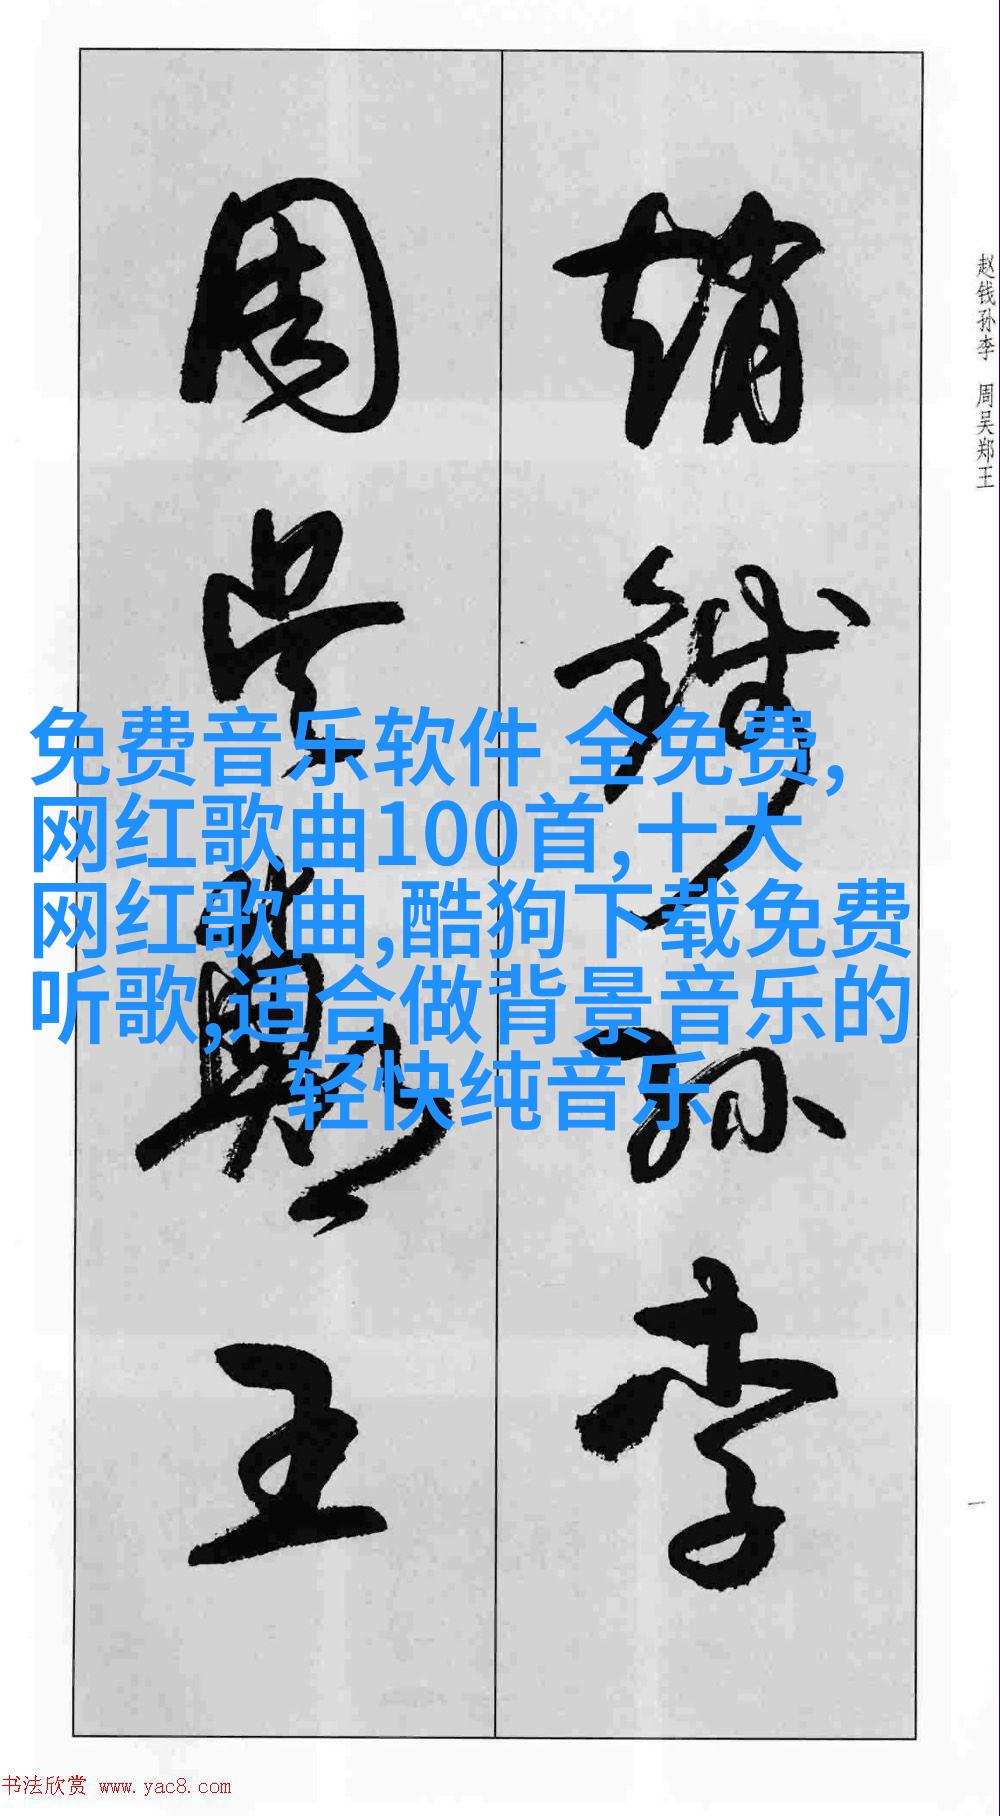 趙錢孫李
周吳鄭王
赵钱孙李 周吴郑王
免费音乐软件 全免费,
网红歌曲100首,十大
网红歌曲,酷狗下载免费
听歌,适合做背景音乐的
轻快纯音乐
一
书法欣赏 www.yac8.com